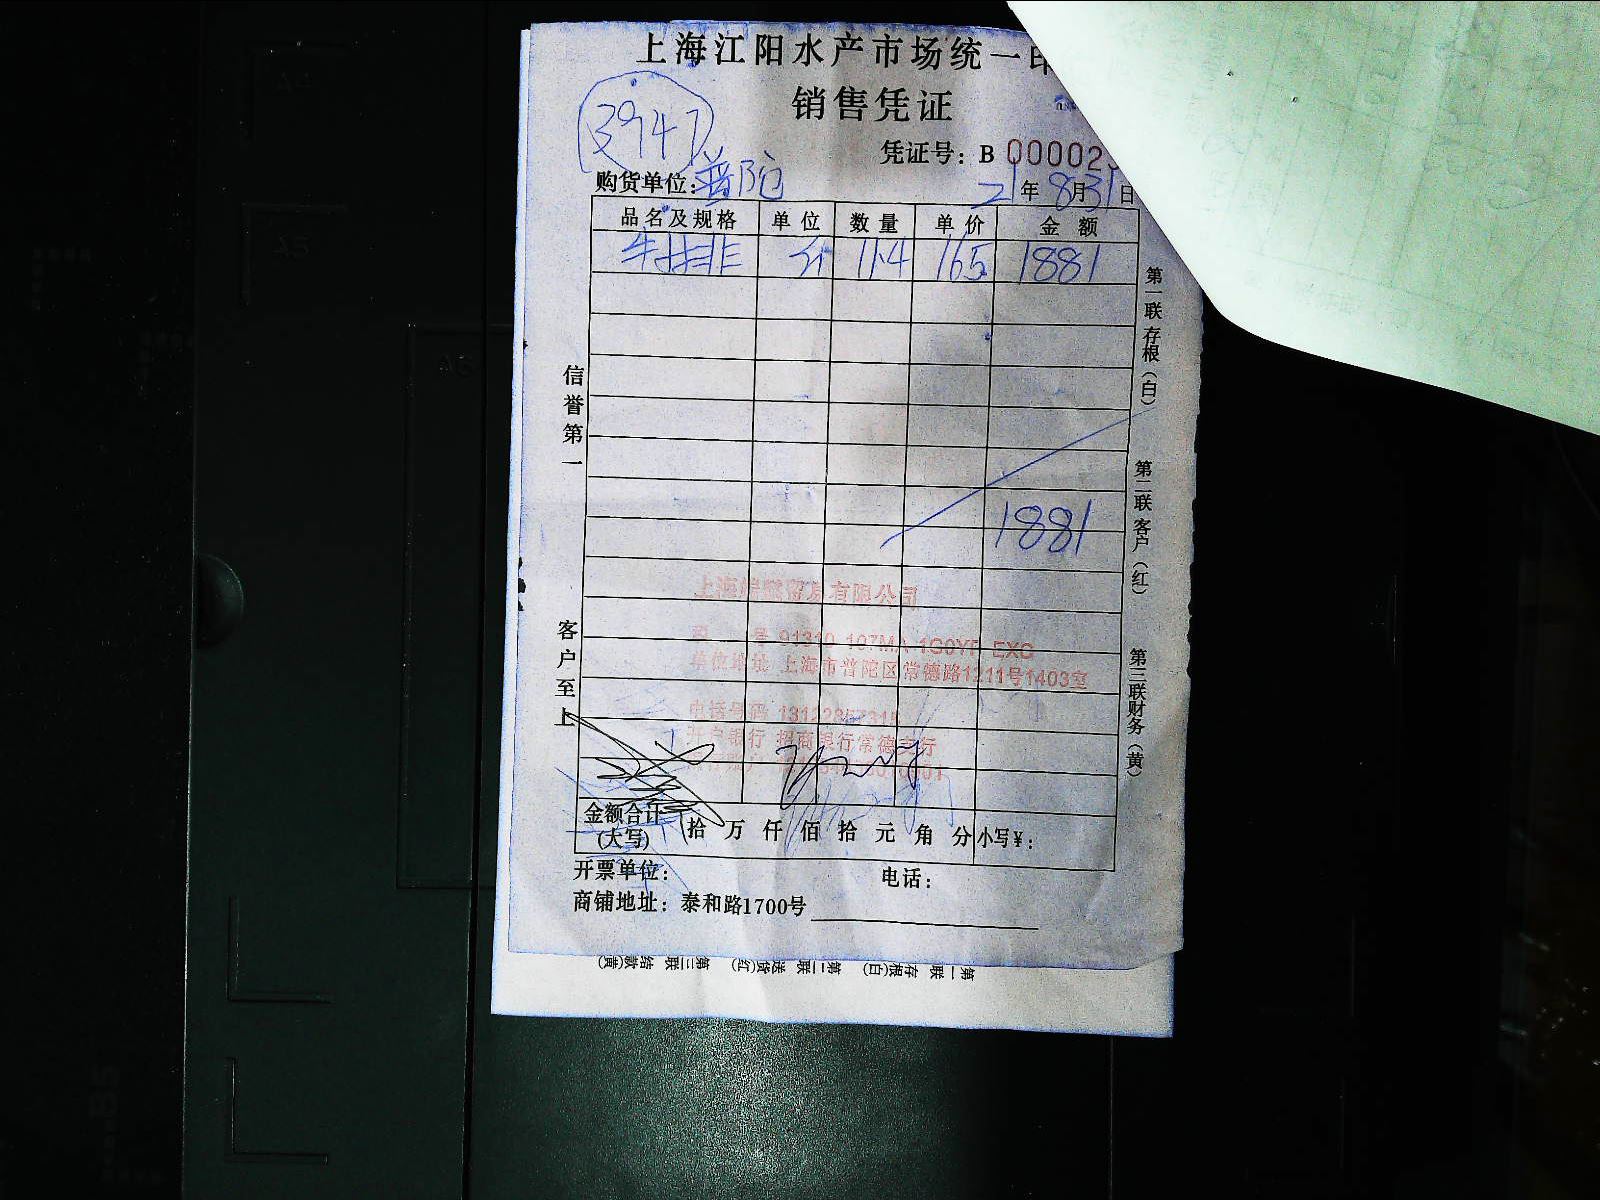 上海江阳水产市场统一印
销售凭证
3947
凭证号：B 000023
购货单位：普陀
21年8月31日
品名及规格 单位 数量 单价 金额
牛排 斤 11.4 165 1881
1881
信誉第一
客户至上
第一联存根（白）
第二联客户（红）
第三联财务（黄）
有限公司
号 91310 107MA
单位地址 上海市普陀区常德路1211号1403室
电话号码
开户银行 招商银行常德支行
金额合计（大写） 拾 万 仟 佰 拾 元 角 分 小写¥：
开票单位： 电话：
商铺地址：泰和路1700号
第一联 存根(白) 第二联 送货(红) 第三联 结款(黄)